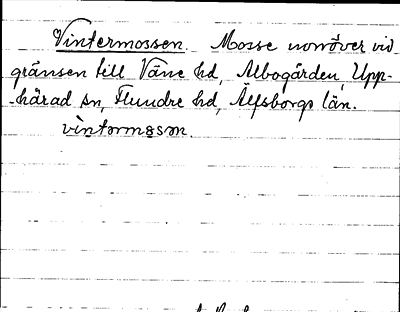 Vintermossen. Mosse norröver vid
gränsen till Väne hd, Albogården, Upp-
-härad sn, Flundre hd, Älfsborgs län.
vìntərmɵsən.